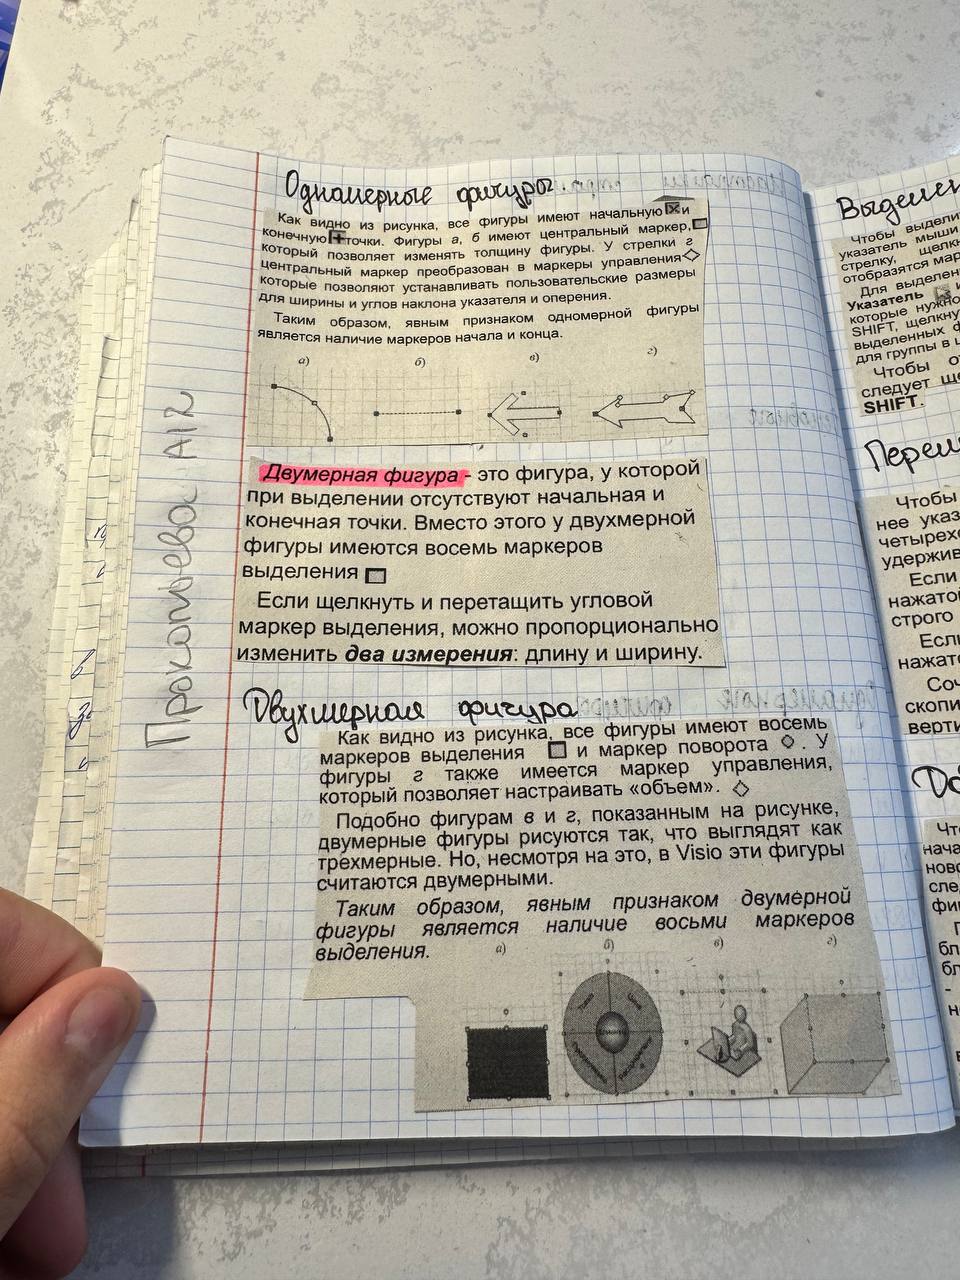 Одномерные фигуры.
Как видно из рисунка, все фигуры имеют начальную и
конечную точки. Фигуры а, б имеют центральный маркер,
который позволяет изменять толщину фигуры. У стрелки г
центральный маркер преобразован в маркеры управления
которые позволяют устанавливать пользовательские размеры
для ширины и углов наклона указателя и оперения.
Таким образом, явным признаком одномерной фигуры
является наличие маркеров начала и конца.
а) б) в) г)
Двумерная фигура - это фигура, у которой
при выделении отсутствуют начальная и
конечная точки. Вместо этого у двухмерной
фигуры имеются восемь маркеров
выделения
Если щелкнуть и перетащить угловой
маркер выделения, можно пропорционально
изменить два измерения: длину и ширину.
Двухмерная фигура
Как видно из рисунка, все фигуры имеют восемь
маркеров выделения и маркер поворота . У
фигуры г также имеется маркер управления,
который позволяет настраивать «объем».
Подобно фигурам в и г, показанным на рисунке,
двумерные фигуры рисуются так, что выглядят как
трехмерные. Но, несмотря на это, в Visio эти фигуры
считаются двумерными.
Таким образом, явным признаком двумерной
фигуры является наличие восьми маркеров
выделения.
а) б) в) г)
Прокопьева А12
Чтобы
указатель мыши
стрелку,
отобразятся
Для
Указатель
которые нужно
SHIFT,
выделенных
для группы в
Чтобы
следует
SHIFT.
Чтобы
нее
Если
строго